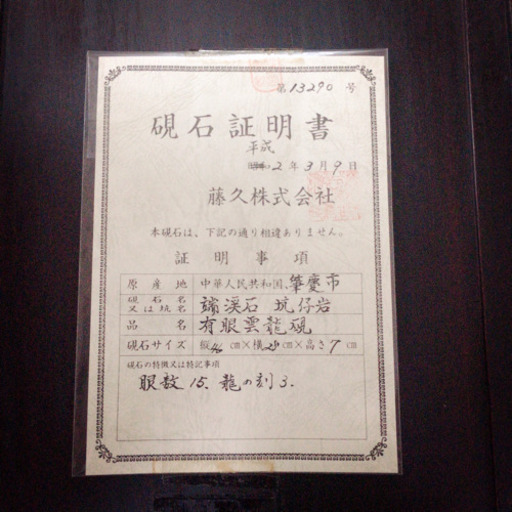 第13290号
硯石証明書
平成
昭和2年3月9日
藤久株式会社
本硯石は、下記の通り相違ありません。
証明事項
原産地 中華人民共和国、肇慶市
硯石名又は坑名 端渓石 坑仔岩
品名 有眼雲龍硯
硯石サイズ 縦46cm×横29cm×高さ7cm
硯石の特徴又は特記事項
眼数15、龍の刻3.